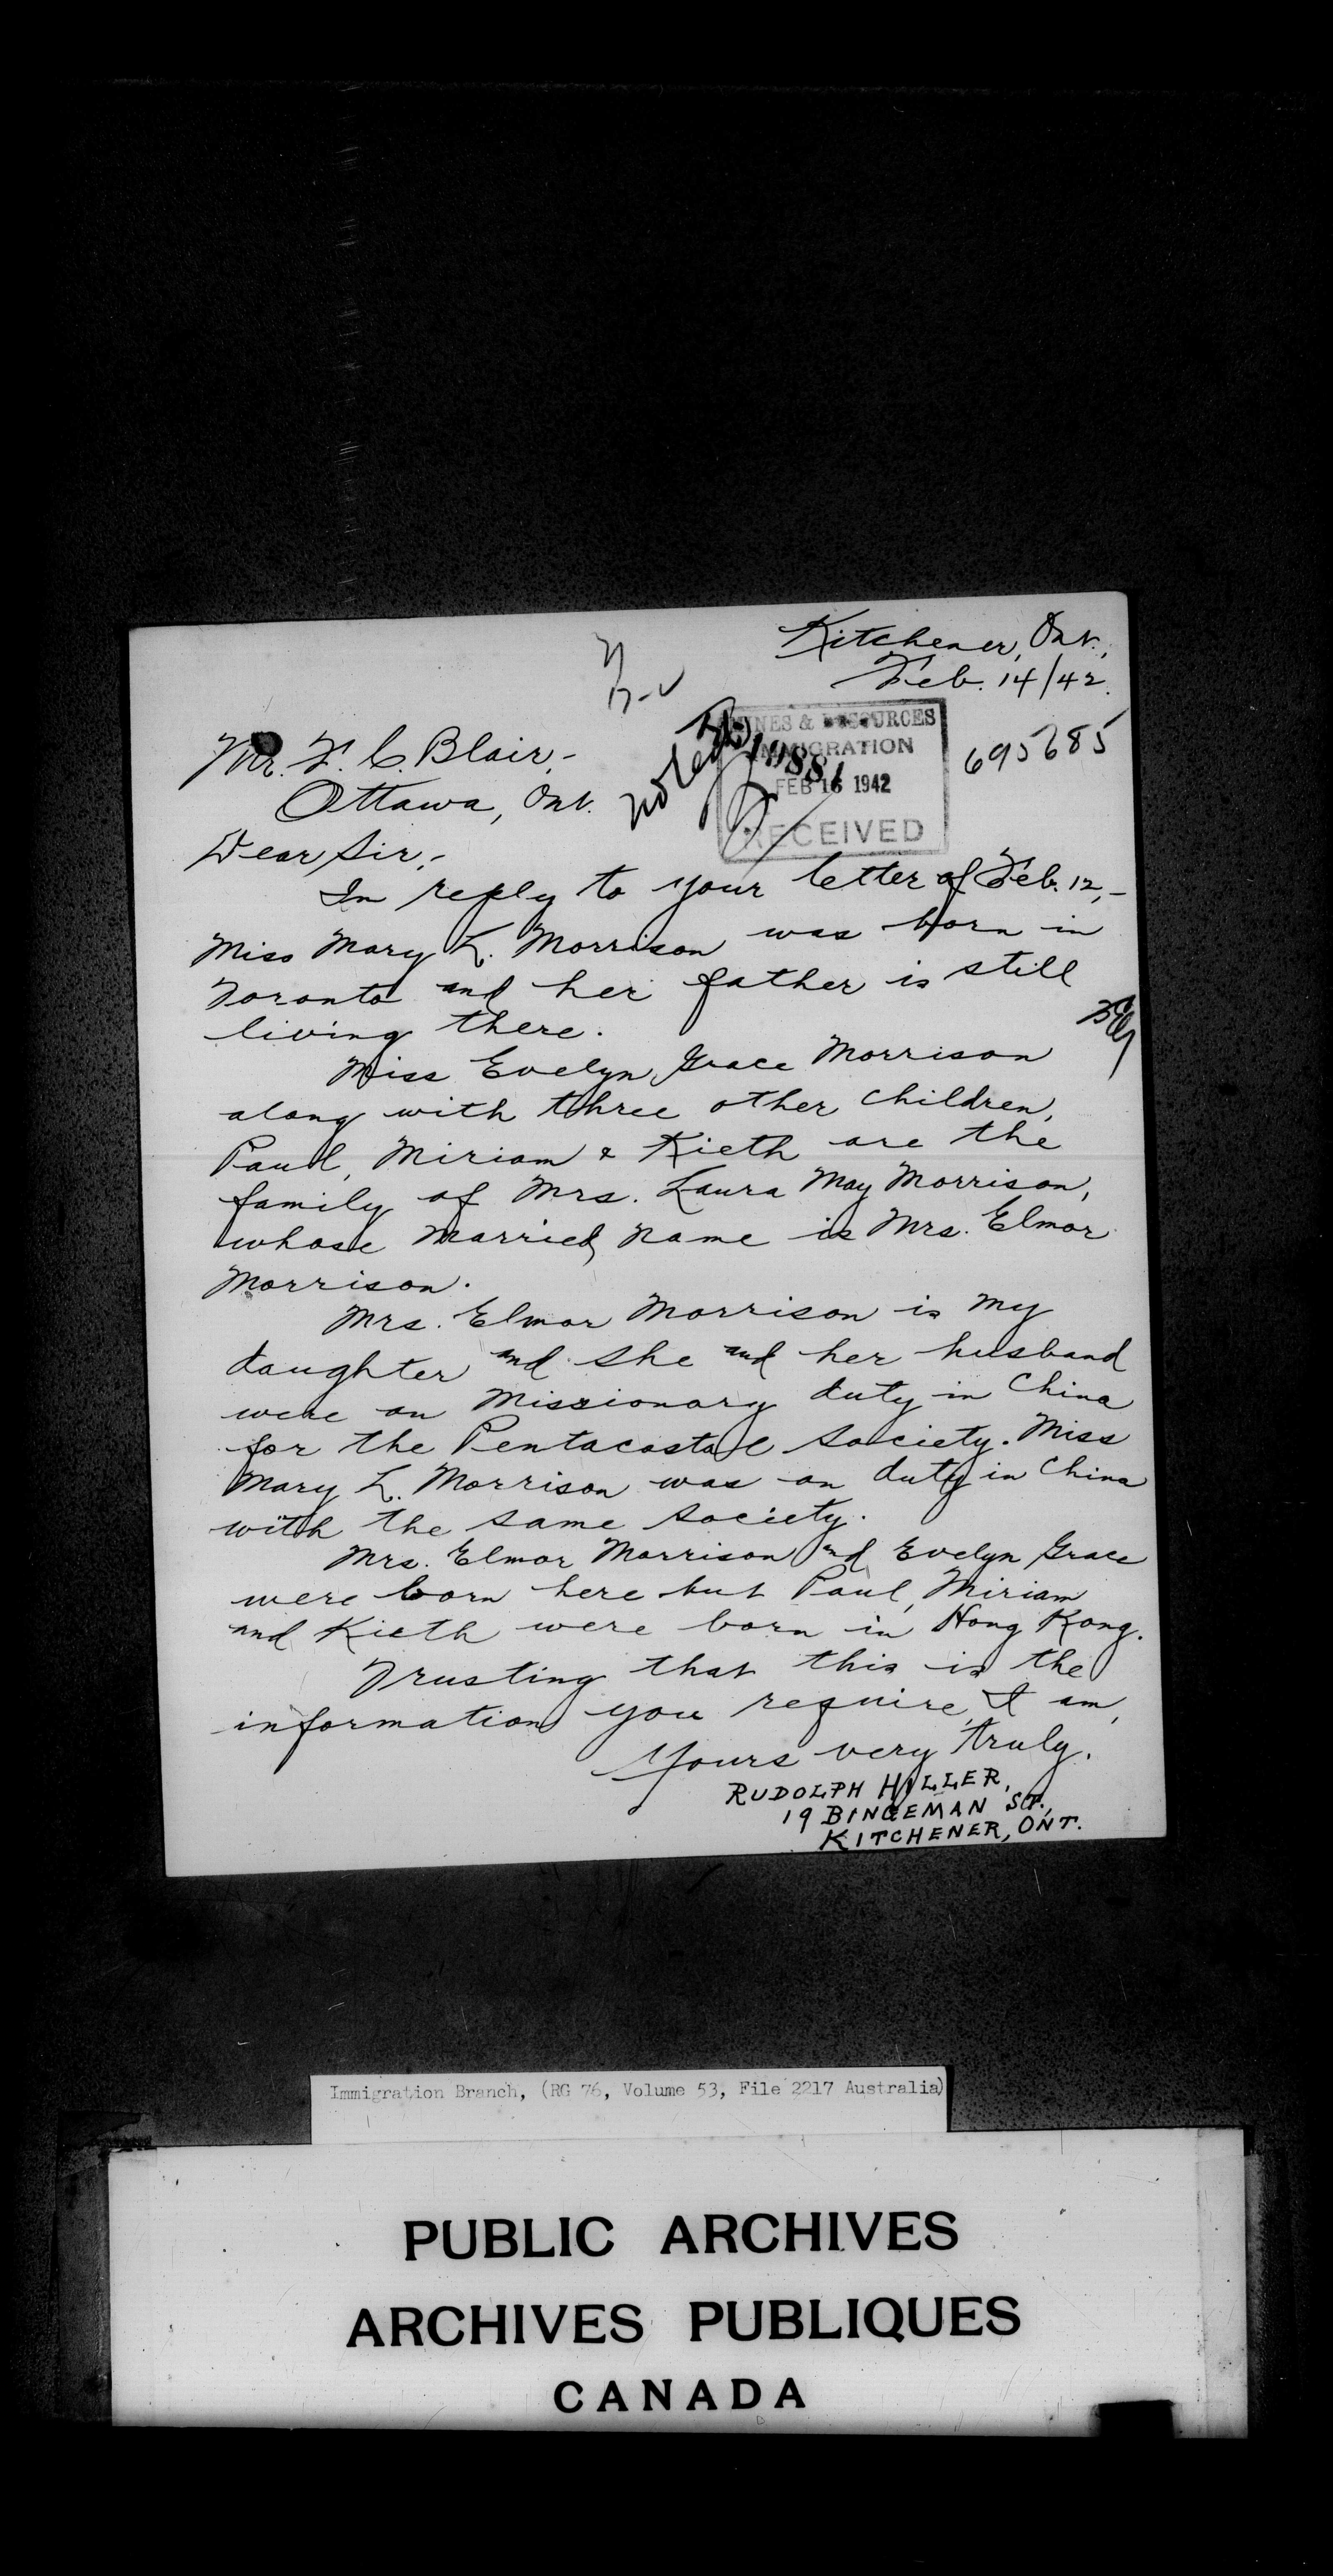 Kitchener, Ont.,
Feb. 14/42.
MINES & RESOURCES
IMMIGRATION
FEB 16 1942
RECEIVED
19881
695685
noted
Mr. F. C. Blair,-
Ottawa, Ont.
Dear Sir,-
In reply to your letter of Feb. 12,-
Miss Mary L. Morrison was born in
Toronto and her father is still
living there.
Miss Evelyn Grace Morrison
along with three other children,
Paul, Miriam & Kieth are the
family of Mrs. Laura May Morrison,
whose married name is Mrs. Elmor
Morrison.
Mrs. Elmor Morrison is my
daughter and she and her husband
were on missionary duty in China
for the Pentacostal Society. Miss
Mary L. Morrison was on duty in China
with the same society.
Mrs. Elmor Morrison and Evelyn Grace
were born here but Paul, Miriam
and Kieth were born in Hong Kong.
Trusting that this is the
information you require, I am,
Yours very truly.
RUDOLPH HILLER,
19 BINGEMAN ST.,
KITCHENER, ONT.
Immigration Branch, (RG 76, Volume 53, File 2217 Australia)
PUBLIC ARCHIVES
ARCHIVES PUBLIQUES
CANADA